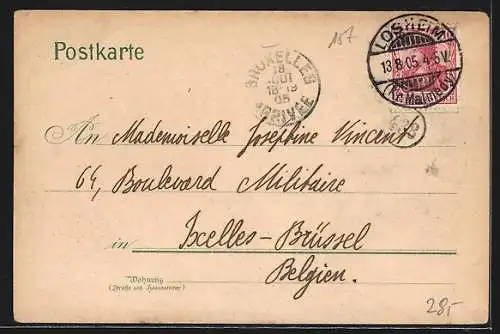 157
Postkarte
LOSHEIM
13.8.05.4-5V.
(Kr. Malmedy)
BRUXELLES
18-19
05
ARRIVEE
An Mademoiselle Josephine Vincent
64, Boulevard Militaire
in Ixelles-Brüssel
Belgien.
Wohnung
(Straße und Hausnummer)
28,-